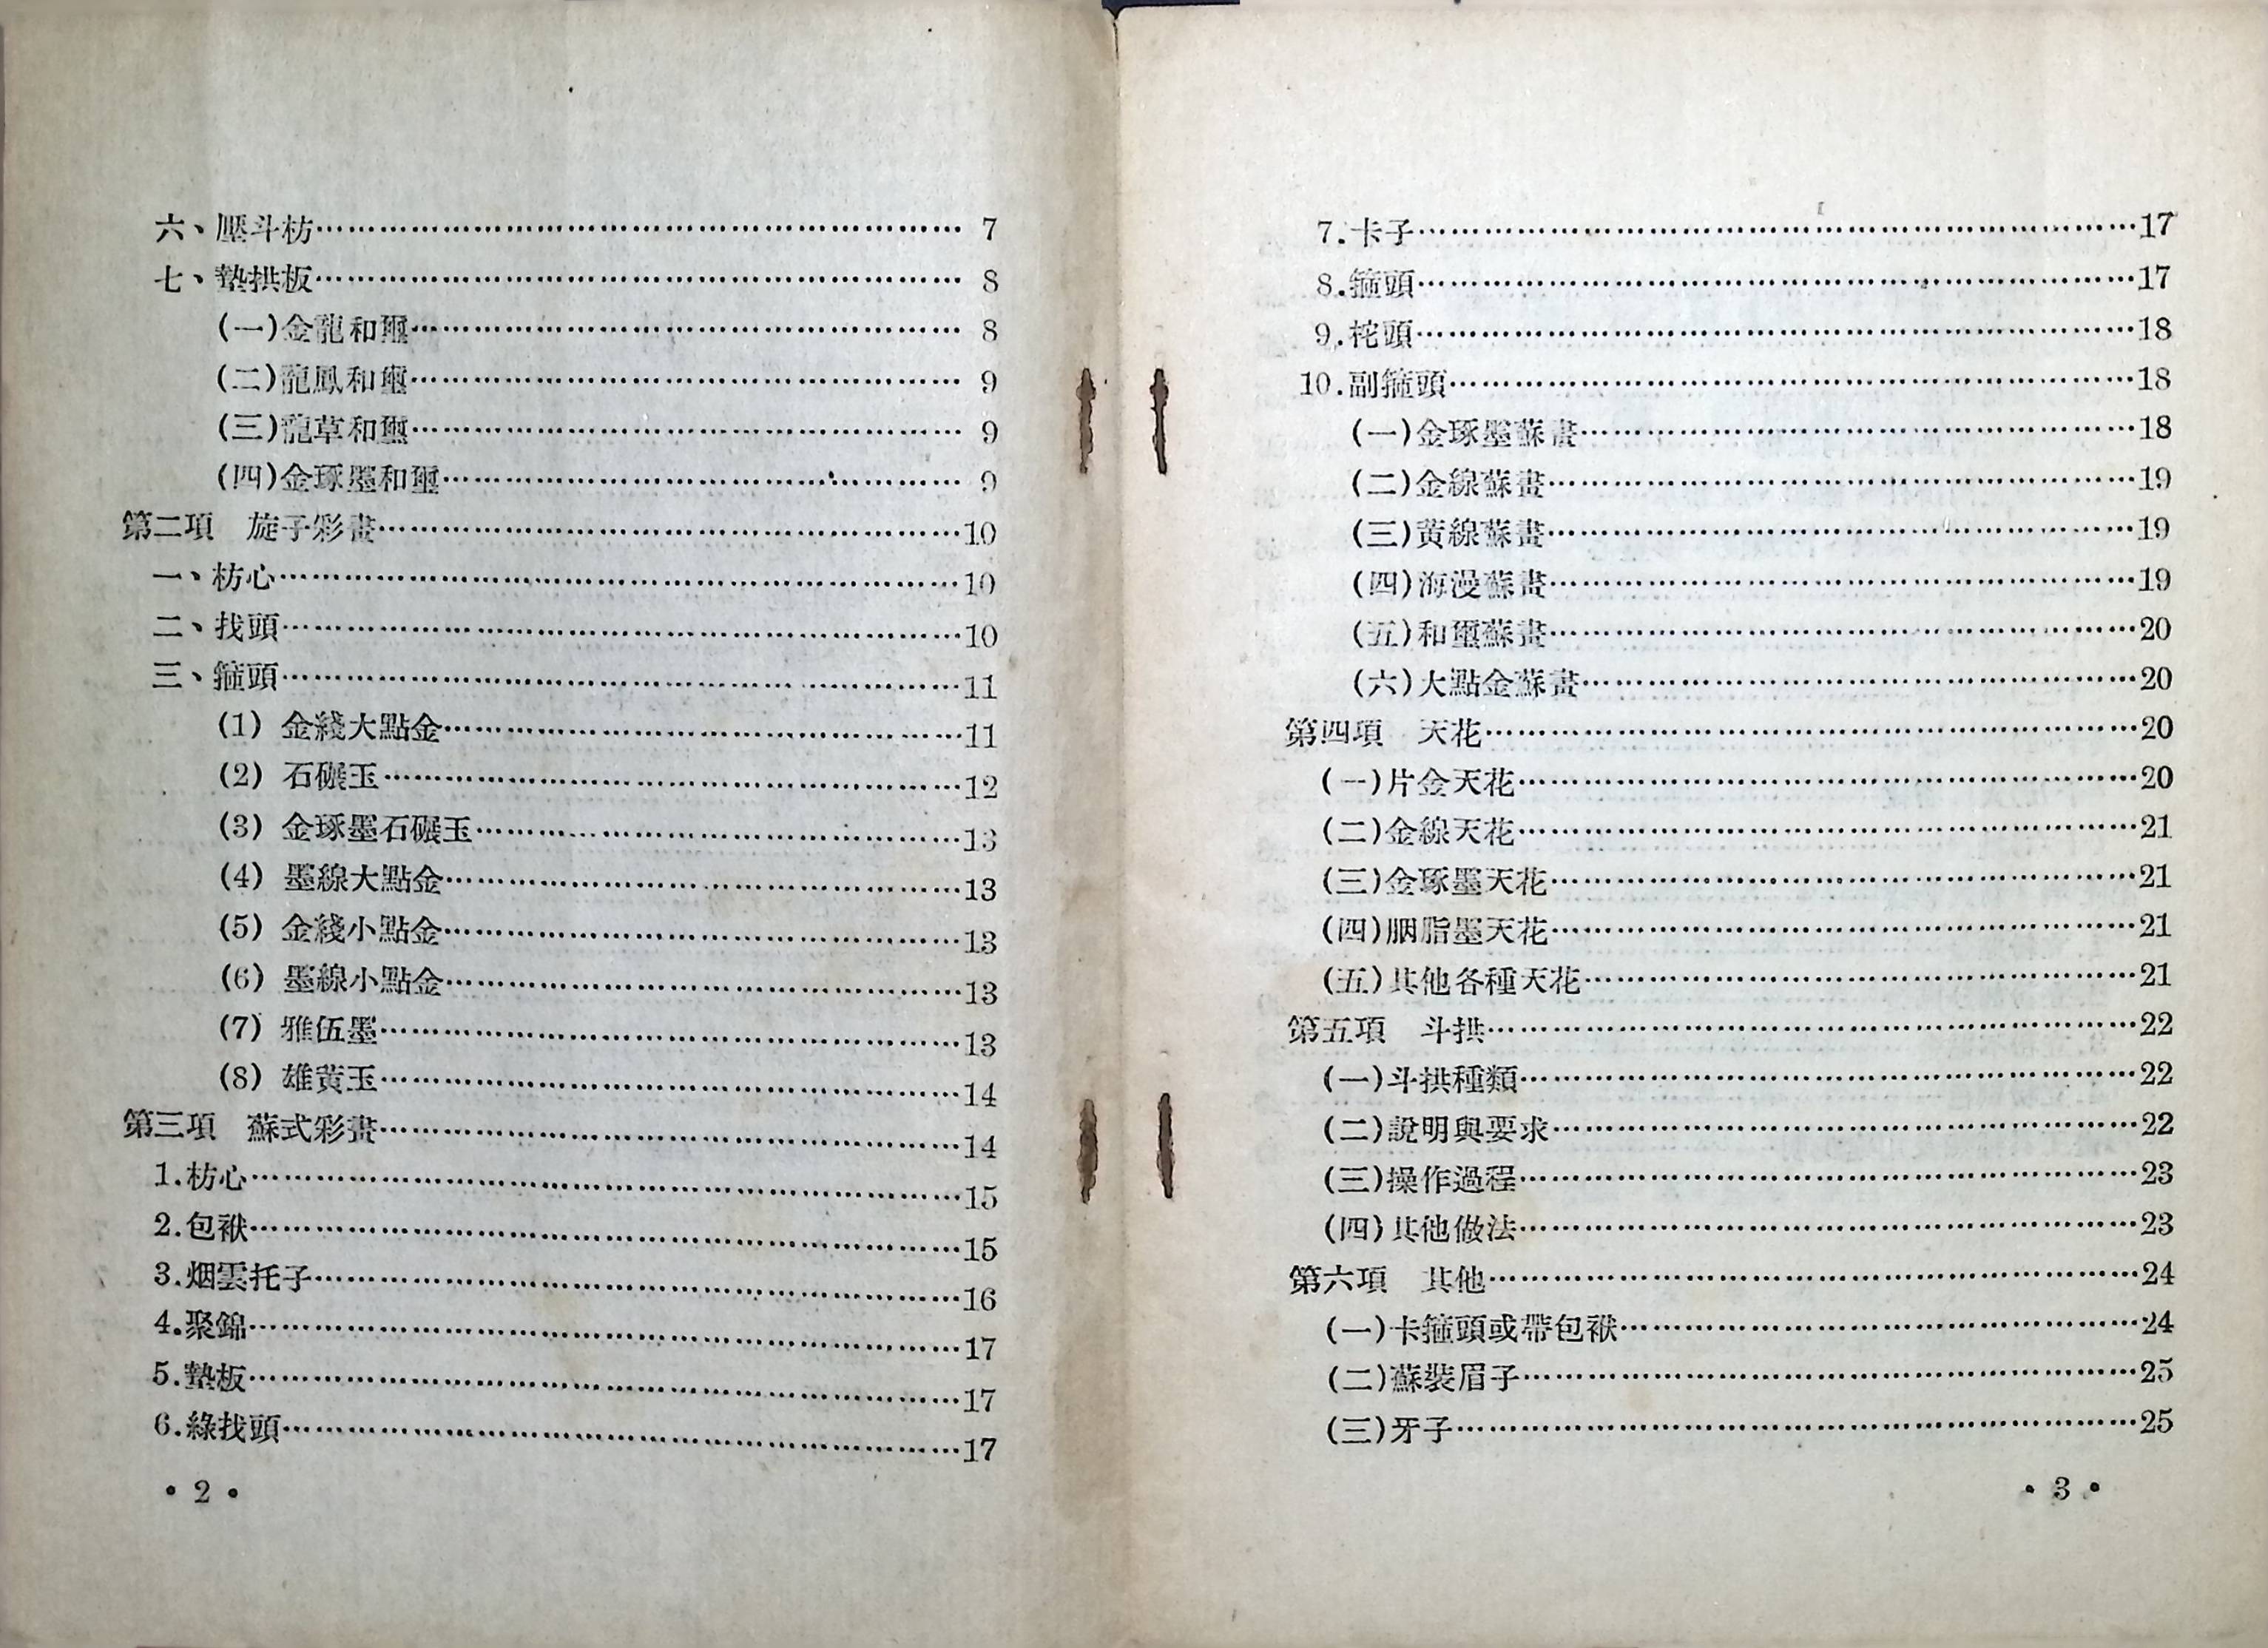 六、壓斗枋…………………………………………… 7
七、墊拱板…………………………………………… 8
(一)金龍和璽…………………………………………… 8
(二)龍鳳和璽…………………………………………… 9
(三)龍草和璽…………………………………………… 9
(四)金琢墨和璽…………………………………………… 9
第二項　旋子彩畫……………………………………………10
一、枋心……………………………………………10
二、找頭……………………………………………10
三、箍頭……………………………………………11
(1) 金綫大點金……………………………………………11
(2) 石碾玉……………………………………………12
(3) 金琢墨石碾玉……………………………………………13
(4) 墨線大點金……………………………………………13
(5) 金綫小點金……………………………………………13
(6) 墨線小點金……………………………………………13
(7) 雅伍墨……………………………………………13
(8) 雄黃玉……………………………………………14
第三項　蘇式彩畫……………………………………………14
1.枋心……………………………………………15
2.包袱……………………………………………15
3.烟雲托子……………………………………………16
4.聚錦……………………………………………17
5.墊板……………………………………………17
6.綠找頭……………………………………………17
• 2 •
7.卡子……………………………………………17
8.箍頭……………………………………………17
9.柁頭……………………………………………18
10.副箍頭……………………………………………18
(一)金琢墨蘇畫……………………………………………18
(二)金線蘇畫……………………………………………19
(三)黃線蘇畫……………………………………………19
(四)海漫蘇畫……………………………………………19
(五)和璽蘇畫……………………………………………20
(六)大點金蘇畫……………………………………………20
第四項　天花……………………………………………20
(一)片金天花……………………………………………20
(二)金線天花……………………………………………21
(三)金琢墨天花……………………………………………21
(四)胭脂墨天花……………………………………………21
(五)其他各種天花……………………………………………21
第五項　斗拱……………………………………………22
(一)斗拱種類……………………………………………22
(二)說明與要求……………………………………………22
(三)操作過程……………………………………………23
(四)其他做法……………………………………………23
第六項　其他……………………………………………24
(一)卡箍頭或帶包袱……………………………………………24
(二)蘇裝眉子……………………………………………25
(三)牙子……………………………………………25
• 3 •